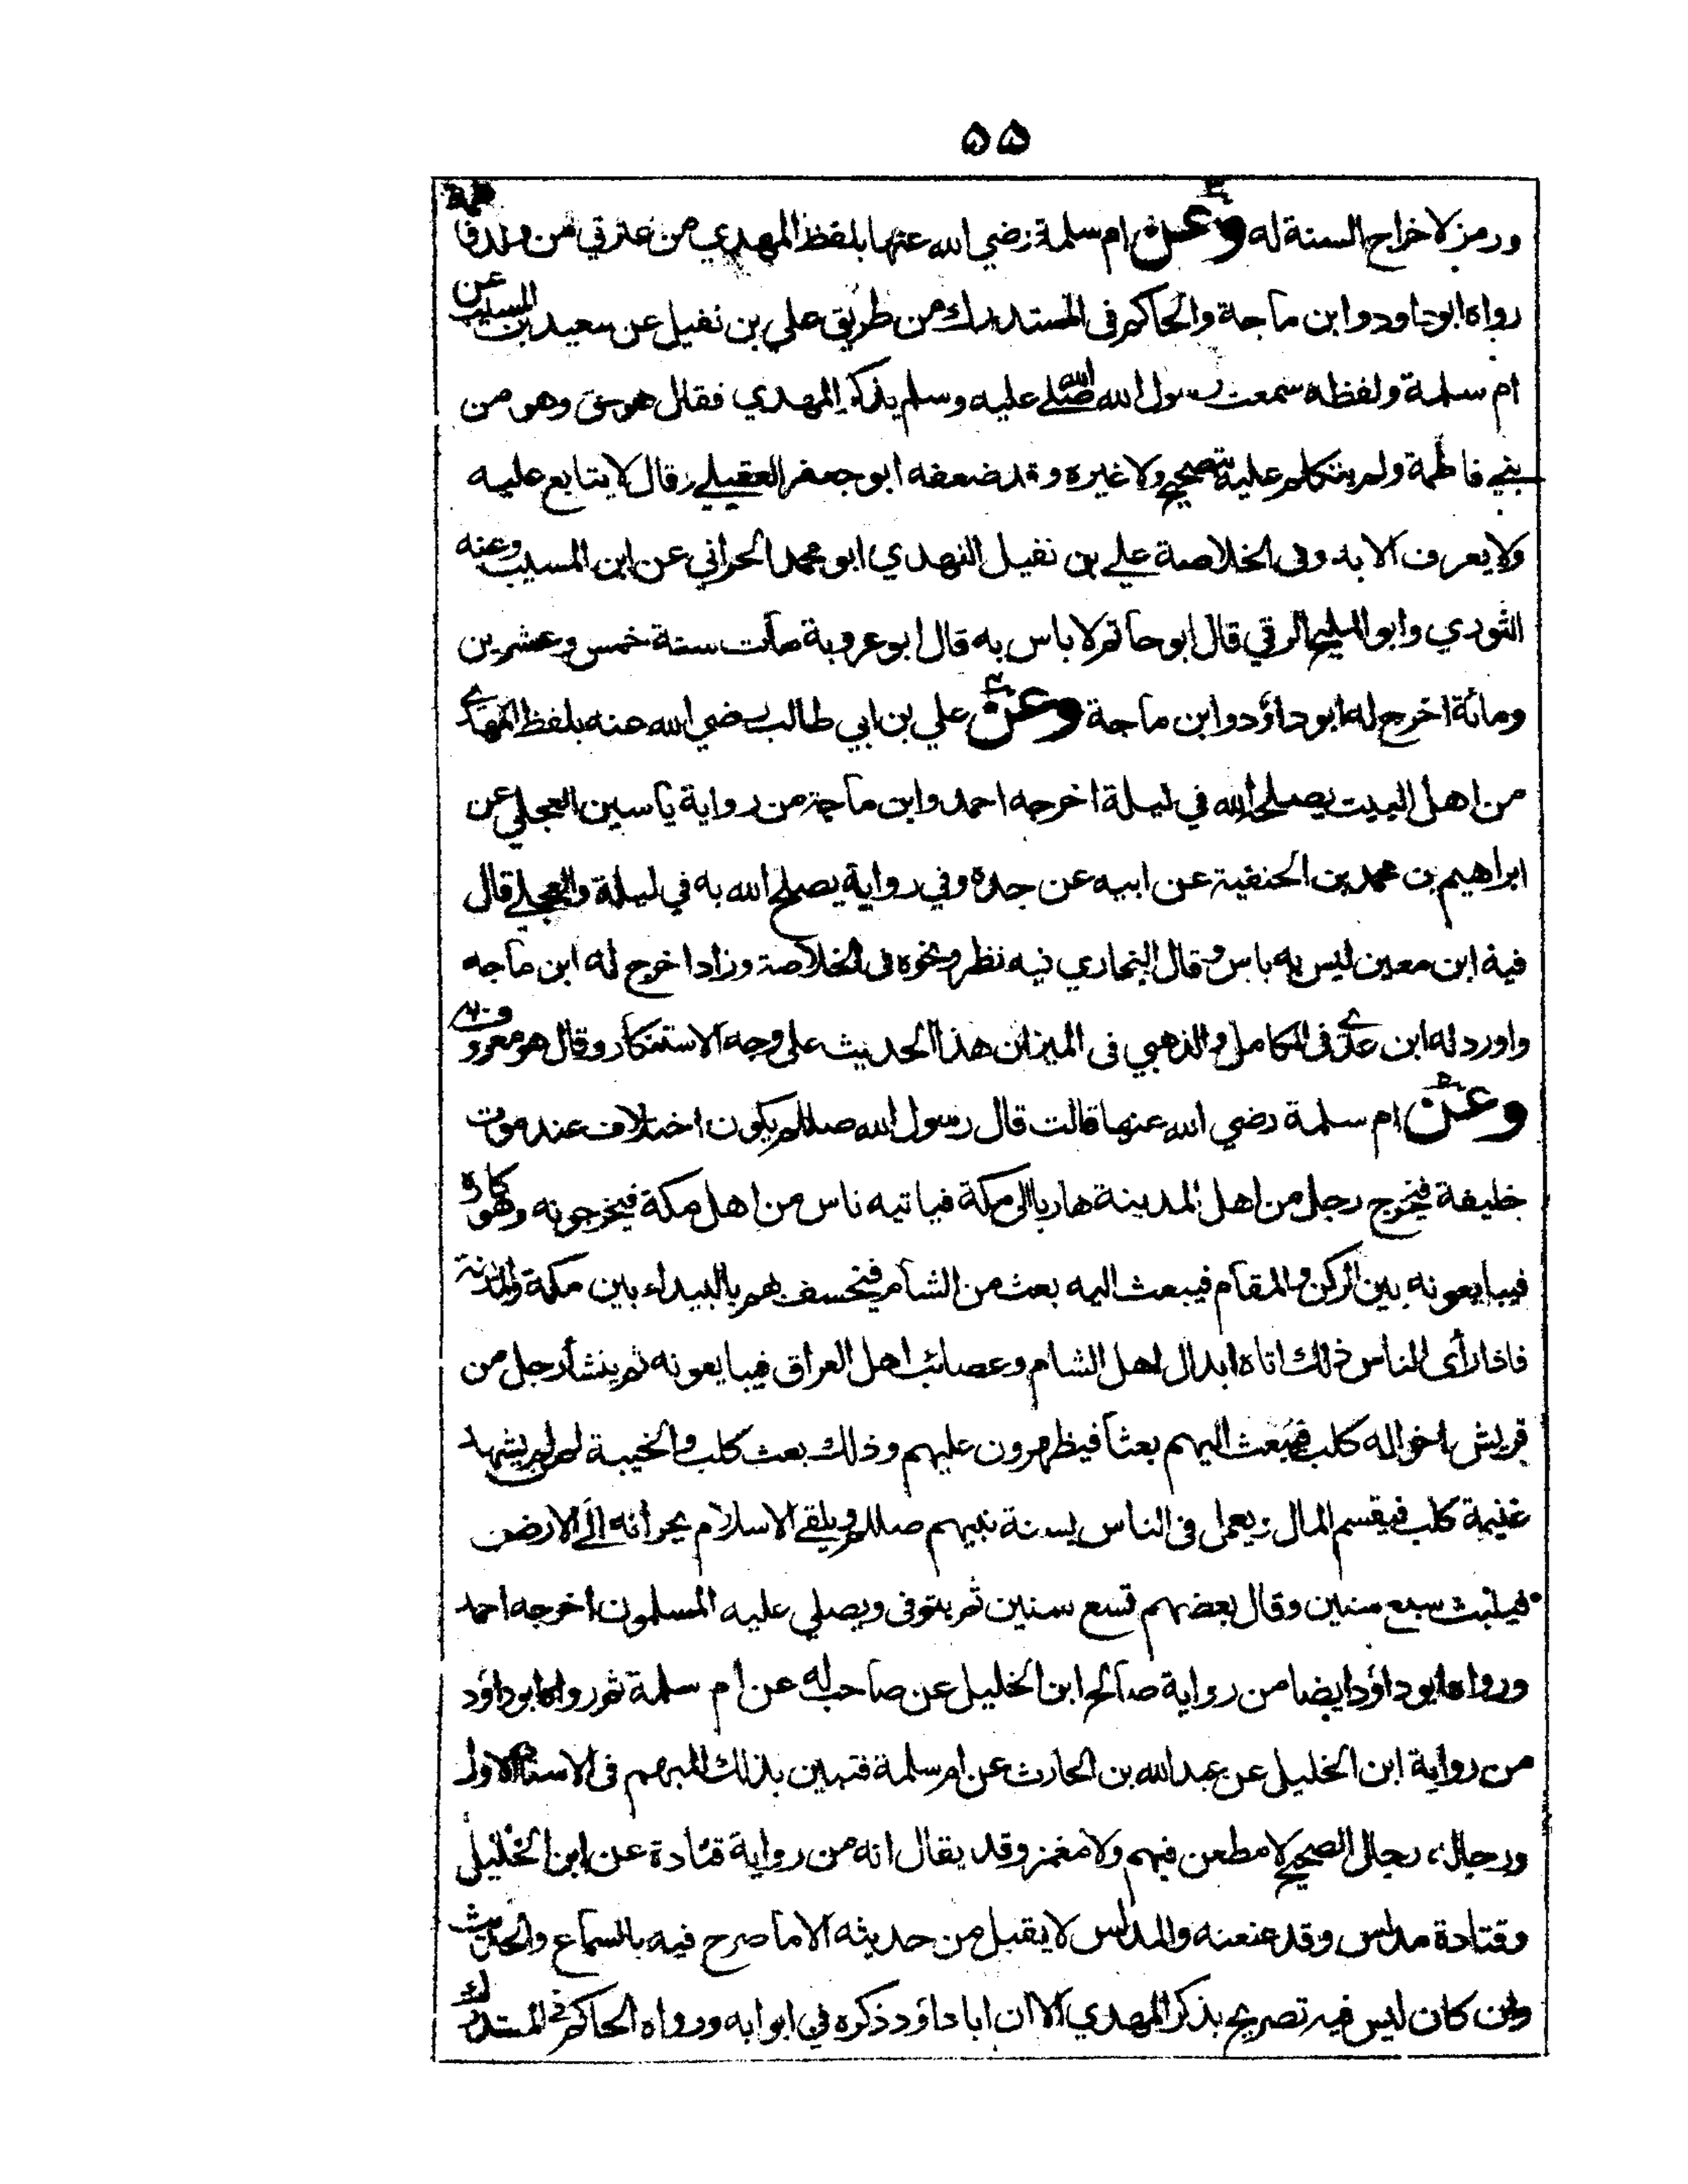 ٥٥
ورمز لاخراج الستة له وعن ام سلمة رضي الله عنها بلفظ المهدي من عترتي من ولد فاطمة
رواه ابوداود وابن ماجة والحاكم فى المستدرك من طريق علي بن نفيل عن سعيد بن المسيب عن
ام سلمة ولفظه سمعت رسول الله صلى الله عليه وسلم يذكر المهدي فقال هو حق وهو من
بني فاطمة ولم يتكلم عليه بتصحيح ولا غيره وقد ضعفه ابو جعفر العقيلي وقال لا يتابع عليه
ولا يعرف الا به وفى الخلاصة علي بن نفيل النهدي ابو محمد الحراني عن ابن المسيب وعنه
الثوري وابو المليح الرقي قال ابو حاتم لا باس به قال ابو عروبة مات سنة خمس وعشرين
ومائة اخرج له ابو داؤد وابن ماجة وعن علي بن ابي طالب رضي الله عنه بلفظ المهدي
من اهل البيت يصلح الله في ليلة اخرجه احمد وابن ماجة من رواية ياسين العجلي عن
ابراهيم بن محمد بن الحنفية عن ابيه عن جده وفي رواية يصلح الله به في ليلة والعجلي قال
فيه ابن معين ليس به باس وقال البخاري فيه نظر ونحوه فى الخلاصة وزاد اخرج له ابن ماجه
واورد له ابن عدي فى الكامل والذهبي فى الميزان هذا الحديث على وجه الاستنكار وقال هو معروف به
وعن ام سلمة رضي الله عنها قالت قال رسول الله صللم يكون اختلاف عند موت
خليفة فيخرج رجل من اهل المدينة هاربا الى مكة فياتيه ناس من اهل مكة فيخرجونه وهو كاره
فيبايعونه بين الركن والمقام فيبعث اليه بعث من الشام فيخسف بهم بالبيداء بين مكة والمدينة
فاذا رأى الناس ذلك اتاه ابدال اهل الشام وعصائب اهل العراق فيبايعونه ثم ينشأ رجل من
قريش اخواله كلب فيبعث اليهم بعثا فيظهرون عليهم وذلك بعث كلب والخيبة لمن لم يشهد
غنيمة كلب فيقسم المال ويعمل فى الناس بسنة نبيهم صللم ويلقي الاسلام بجرانه الى الارض
فيلبث سبع سنين وقال بعضهم تسع سنين ثم يتوفى ويصلي عليه المسلمون اخرجه احمد
ورواه ابو داؤد ايضا من رواية صالح ابن الخليل عن صاحب له عن ام سلمة ثم رواه ابو داؤد
من رواية ابن الخليل عن عبدالله بن الحارث عن ام سلمة فتبين بذلك المبهم فى الاسناد الاول
ورجاله رجال الصحيح لا مطعن فيهم ولا مغمز وقد يقال انه من رواية قتادة عن ابن الخليل
وقتادة مدلس وقد عنعنه والمدلس لا يقبل من حديثه الا ما صرح فيه بالسماع والحديث
وان كان ليس فيه تصريح بذكر المهدي الا ان ابا داؤد ذكره في ابوابه ورواه الحاكم فى المستدرك